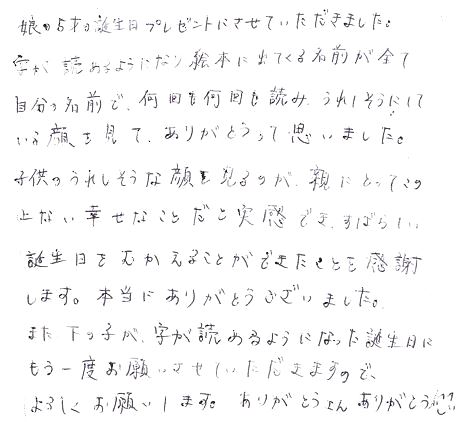 娘の5才の誕生日プレゼントにさせていただきました。
字が読めるようになり絵本に出てくる名前が全て
自分の名前で、何回も何回も読み、うれしそうにして
いる顔を見て、ありがとうって思いました。
子供のうれしそうな顔を見るのが、親にとってこの
上ない幸せなことだと実感でき、すばらしい
誕生日をむかえることができたことを感謝
します。本当にありがとうございました。
また下の子が、字が読めるようになった誕生日に
もう一度お願いさせていただきますので、
よろしくお願いします。ありがとう ありがとう